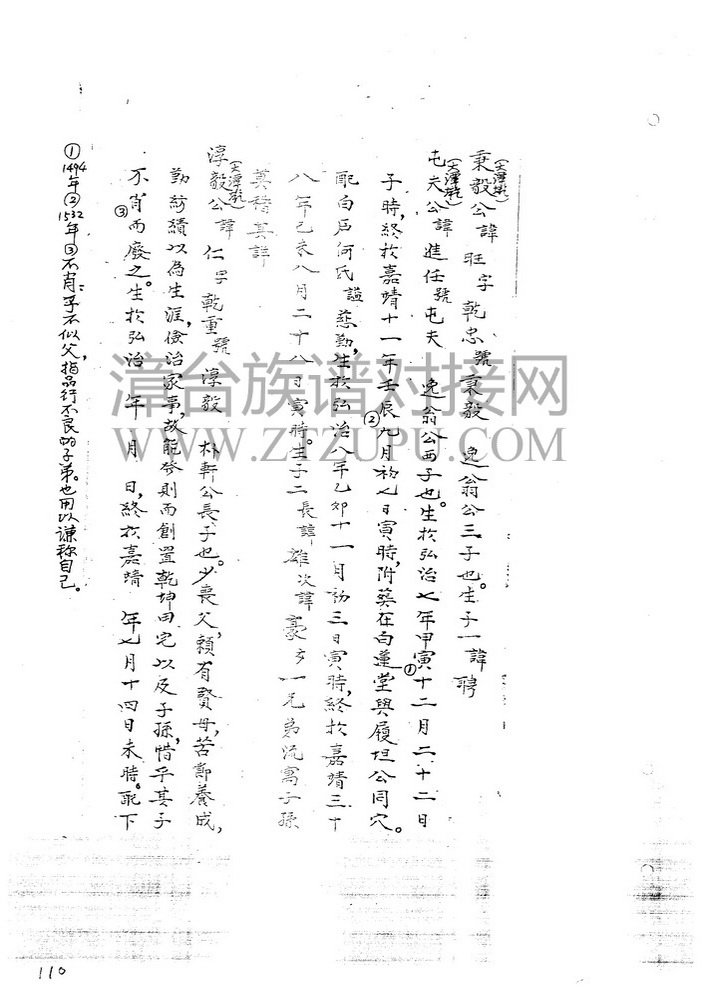 秉毅公諱旺字乾忠號秉毅 逸翁公三子也。生子一諱聘
(天潭乾)
屯夫公諱進任號屯夫 逸翁公四子也。生於弘治七年甲寅①十二月二十二日
(天潭乾)
子時,終於嘉靖十一年壬辰②九月初七日寅時,附葬在白蓮堂與履坦公同穴。
配白后何氏謚慈勤,生於弘治八年乙卯十一月初三日寅時,終於嘉靖三十
八年己未八月二十八日寅時。生子二長諱雄次諱豪 兄弟流寓子孫
莫稽其詳
淳毅公諱仁字乾重號淳毅 朴軒公長子也。少喪父,賴有賢母,苦節養成,
(天潭乾)
勤紡績以為生涯,儉治家事,故能發則而創置乾坤田宅以及子孫,惜乎其子
不肖③而廢之。生於弘治 年 月 日,終於嘉靖 年七月十四日未時。配下
①1494年②1532年③不肖:子不似父,指品行不良的子弟。也用以谦称自己。
漳台族谱对接网
WWW.ZTZUPU.COM
110